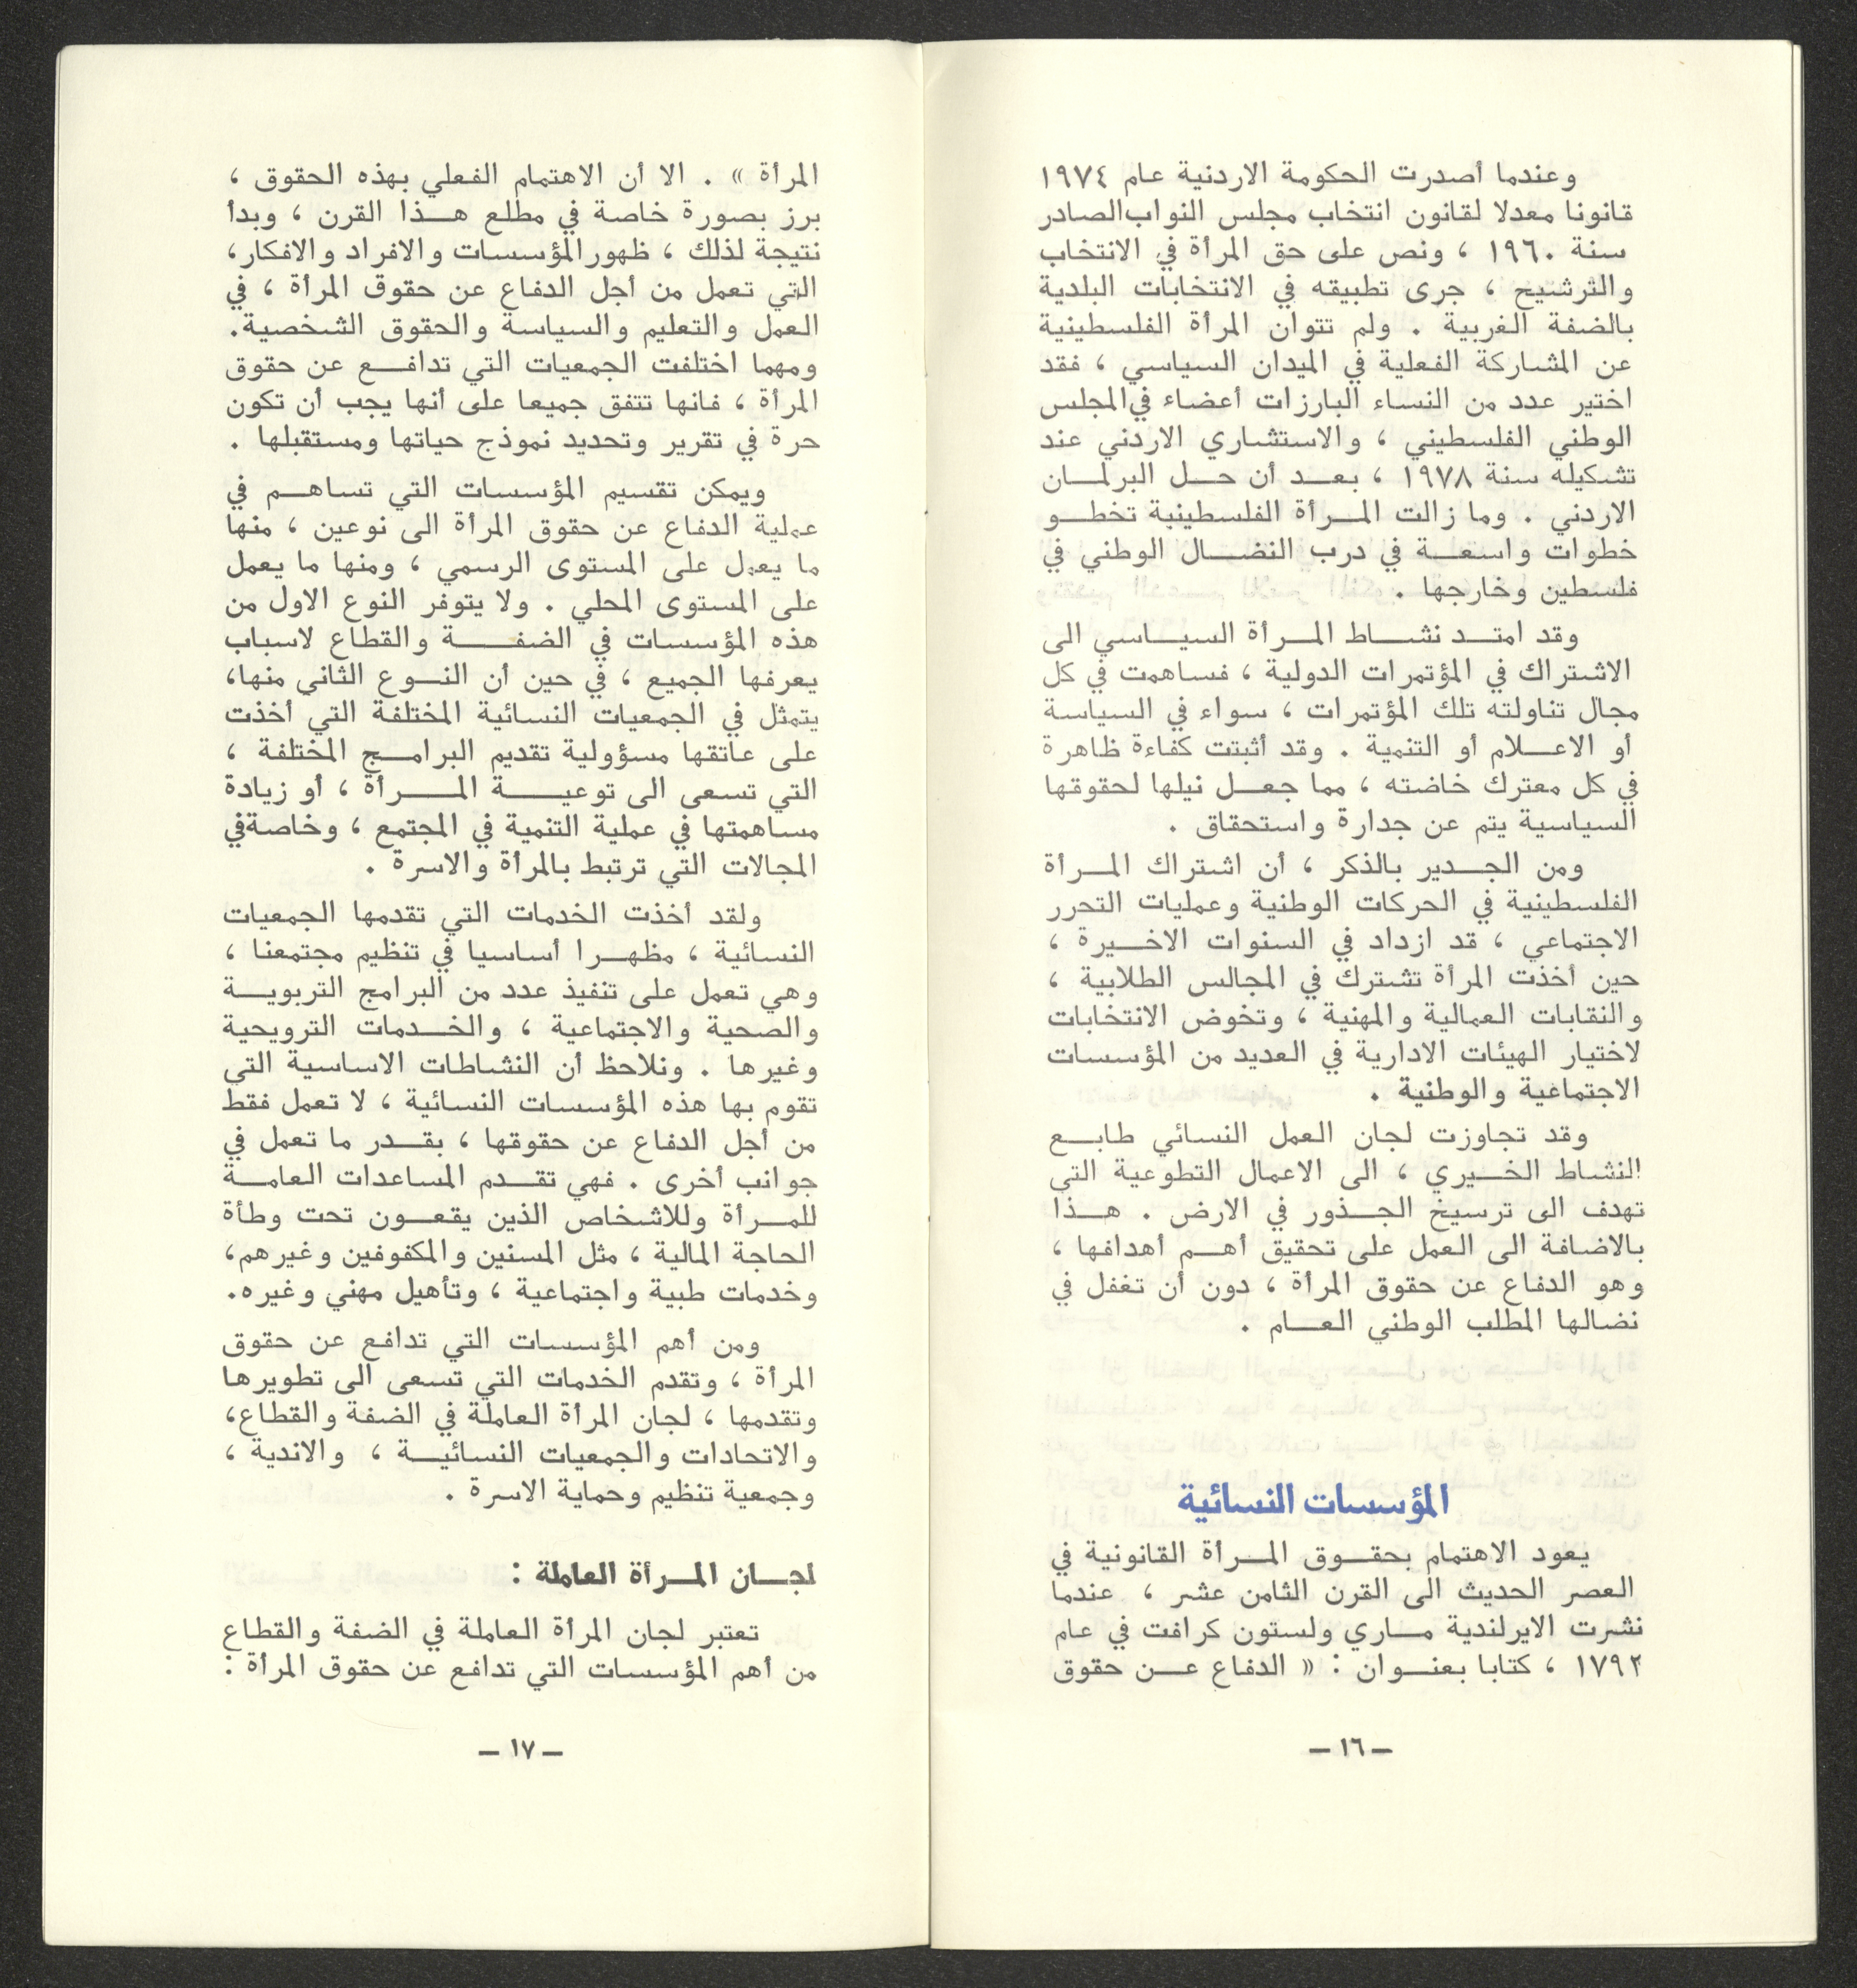 وعندما أصدرت الحكومة الاردنية عام ١٩٧٤
قانونا معدلا لقانون انتخاب مجلس النواب الصادر
سنة ١٩٦٠ ، ونص على حق المرأة في الانتخاب
والترشيح ، جرى تطبيقه في الانتخابات البلدية
بالضفة الغربية . ولم تتوان المرأة الفلسطينية
عن المشاركة الفعلية في الميدان السياسي ، فقد
اختير عدد من النساء البارزات أعضاء في المجلس
الوطني الفلسطيني ، والاستشاري الاردني عند
تشكيله سنة ١٩٧٨ ، بعـد أن حـل البرلمـان
الاردني . وما زالت المـرأة الفلسطينية تخطـو
خطوات واسعـة في درب النضـال الوطني في
فلسطين وخارجها .
وقد امتـد نشـاط المـرأة السيـاسي الى
الاشتراك في المؤتمرات الدولية ، فساهمت في كل
مجال تناولته تلك المؤتمرات ، سواء في السياسة
أو الاعـلام أو التنمية . وقد أثبتت كفاءة ظاهرة
في كل معترك خاضته ، مما جعـل نيلها لحقوقها
السياسية يتم عن جدارة واستحقاق .
ومن الجـدير بالذكر ، أن اشتراك المـرأة
الفلسطينية في الحركات الوطنية وعمليات التحرر
الاجتماعي ، قد ازداد في السنوات الاخـيرة ،
حين أخذت المرأة تشترك في المجالس الطلابية ،
والنقابات العمالية والمهنية ، وتخوض الانتخابات
لاختيار الهيئات الادارية في العديد من المؤسسات
الاجتماعية والوطنية .
وقد تجاوزت لجان العمل النسائي طابـع
النشاط الخـيري ، الى الاعمال التطوعية التي
تهدف الى ترسيخ الجـذور في الارض . هـذا
بالاضافة الى العمل على تحقيق أهـم أهدافها ،
وهو الدفاع عن حقوق المرأة ، دون أن تغفل في
نضالها المطلب الوطني العـام .
المؤسسات النسائية
يعود الاهتمام بحقـوق المـرأة القانونية في
العصر الحديث الى القرن الثامن عشر ، عندما
نشرت الايرلندية مـاري ولستون كرافت في عام
١٧٩٢ ، كتابا بعنـوان : « الدفاع عـن حقوق
– ١٦ –
المرأة » . الا أن الاهتمام الفعلي بهذه الحقوق ،
برز بصورة خاصة في مطلع هـذا القرن ، وبدأ
نتيجة لذلك ، ظهور المؤسسات والافراد والافكار،
التي تعمل من أجل الدفاع عن حقوق المرأة ، في
العمل والتعليم والسياسة والحقوق الشخصية.
ومهما اختلفت الجمعيات التي تدافـع عن حقوق
المرأة ، فانها تتفق جميعا على أنها يجب أن تكون
حرة في تقرير وتحديد نموذج حياتها ومستقبلها .
ويمكن تقسيم المؤسسات التي تساهـم في
عملية الدفاع عن حقوق المرأة الى نوعين ، منها
ما يعمل على المستوى الرسمي ، ومنها ما يعمل
على المستوى المحلي . ولا يتوفر النوع الاول من
هذه المؤسسات في الضفـة والقطاع لاسباب
يعرفها الجميع ، في حين أن النـوع الثاني منها،
يتمثل في الجمعيات النسائية المختلفة التي أخذت
على عاتقها مسؤولية تقديم البرامـج المختلفة ،
التي تسعى الى توعيـة المـرأة ، أو زيادة
مساهمتها في عملية التنمية في المجتمع ، وخاصة في
المجالات التي ترتبط بالمرأة والاسرة .
ولقد أخذت الخدمات التي تقدمها الجمعيات
النسائية ، مظهـرا أساسيا في تنظيم مجتمعنا ،
وهي تعمل على تنفيذ عدد من البرامج التربويـة
والصحية والاجتماعية ، والخـدمات الترويحية
وغيرها . ونلاحظ أن النشاطات الاساسية التي
تقوم بها هذه المؤسسات النسائية ، لا تعمل فقط
من أجل الدفاع عن حقوقها ، بقـدر ما تعمل في
جوانب أخرى . فهي تقـدم المساعدات العامـة
للمـرأة وللاشخاص الذين يقعـون تحت وطأة
الحاجة المالية ، مثل المسنين والمكفوفين وغيرهم،
وخدمات طبية واجتماعية ، وتأهيل مهني وغيره.
ومن أهم المؤسسات التي تدافع عن حقوق
المرأة ، وتقدم الخدمات التي تسعى الى تطويرها
وتقدمها ، لجان المرأة العاملة في الضفة والقطاع،
والاتحادات والجمعيات النسائيـة ، والاندية ،
وجمعية تنظيم وحماية الاسرة .
لجـان المـرأة العاملة :
تعتبر لجان المرأة العاملة في الضفة والقطاع
من أهم المؤسسات التي تدافع عن حقوق المرأة :
– ١٧ –